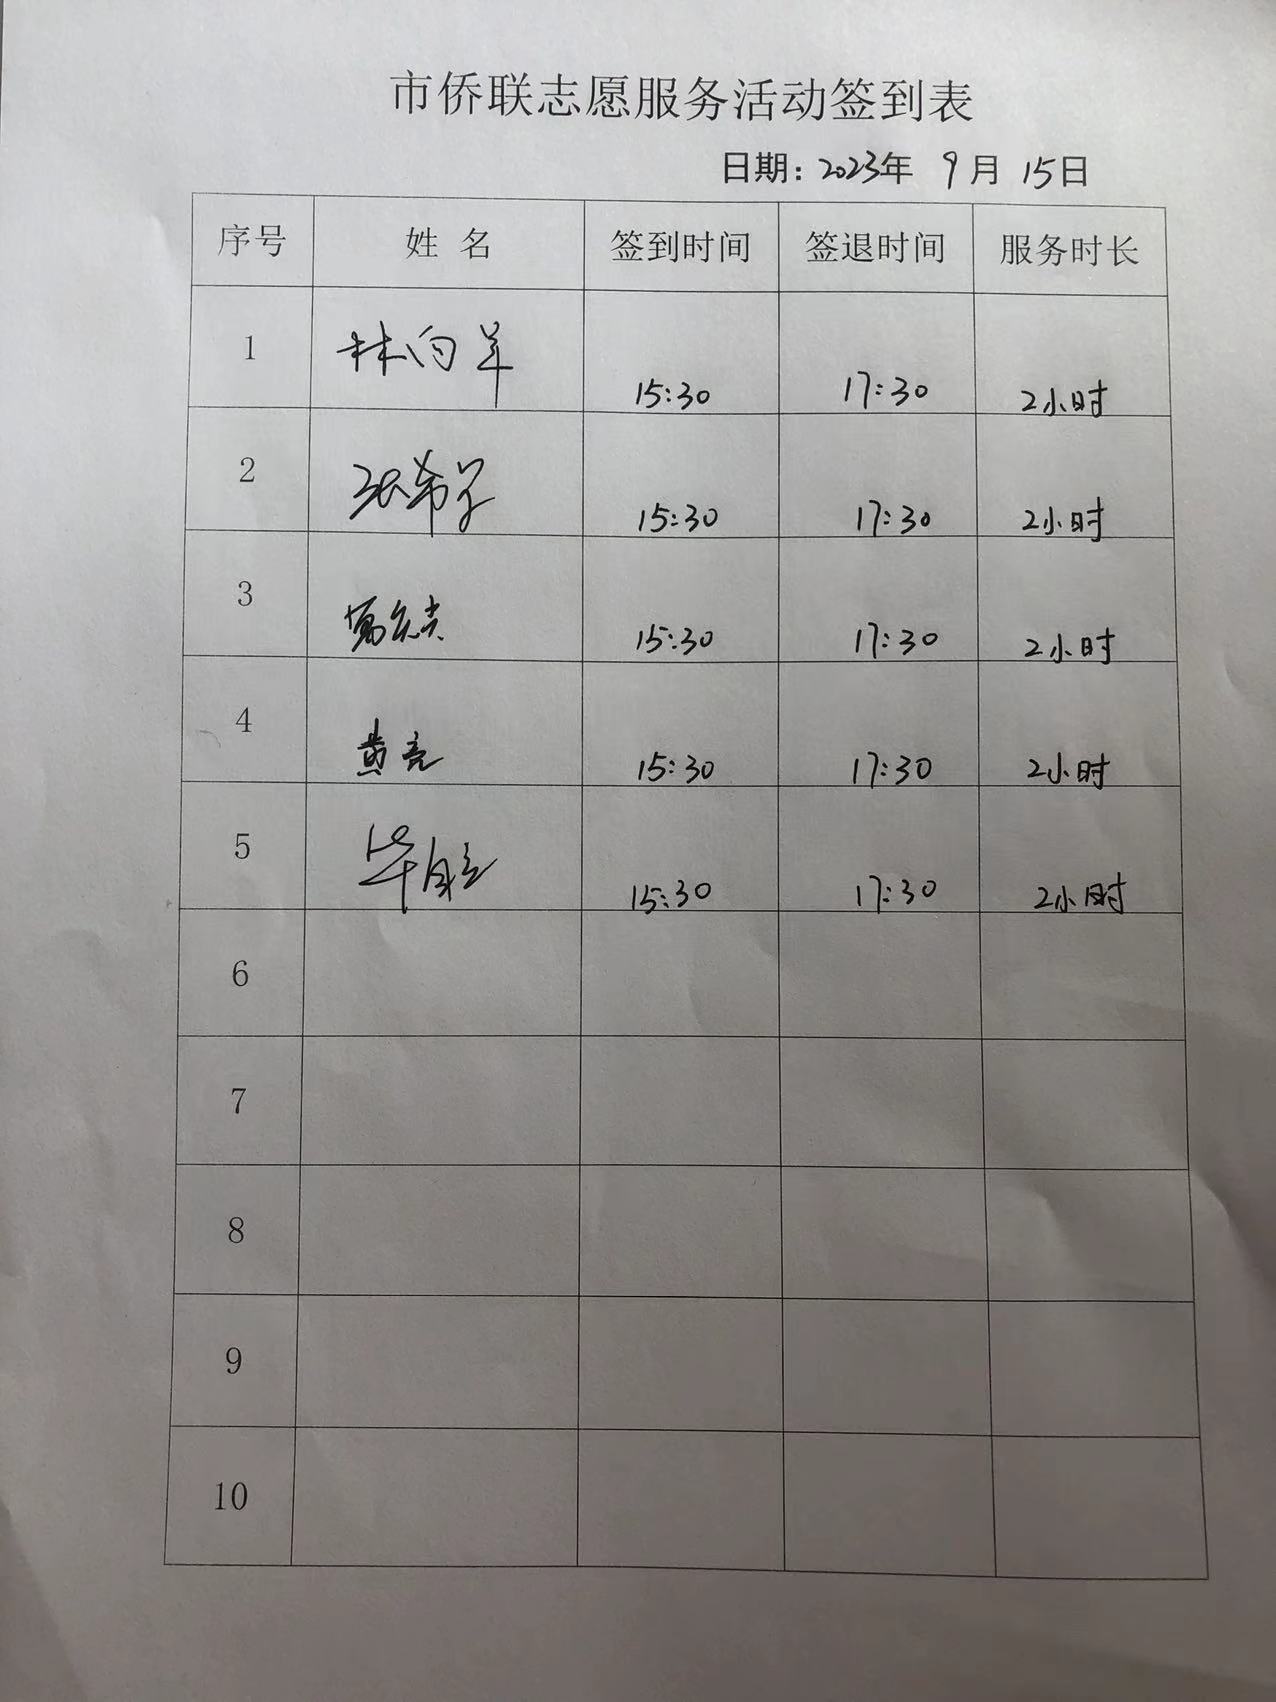 市侨联志愿服务活动签到表
日期：2023年 9月 15日
序号 姓 名 签到时间 签退时间 服务时长
1 林向羊 15:30 17:30 2小时
2 张希 15:30 17:30 2小时
3 15:30 17:30 2小时
4 黄亮 15:30 17:30 2小时
5 毕胜 15:30 17:30 2小时
6
7
8
9
10